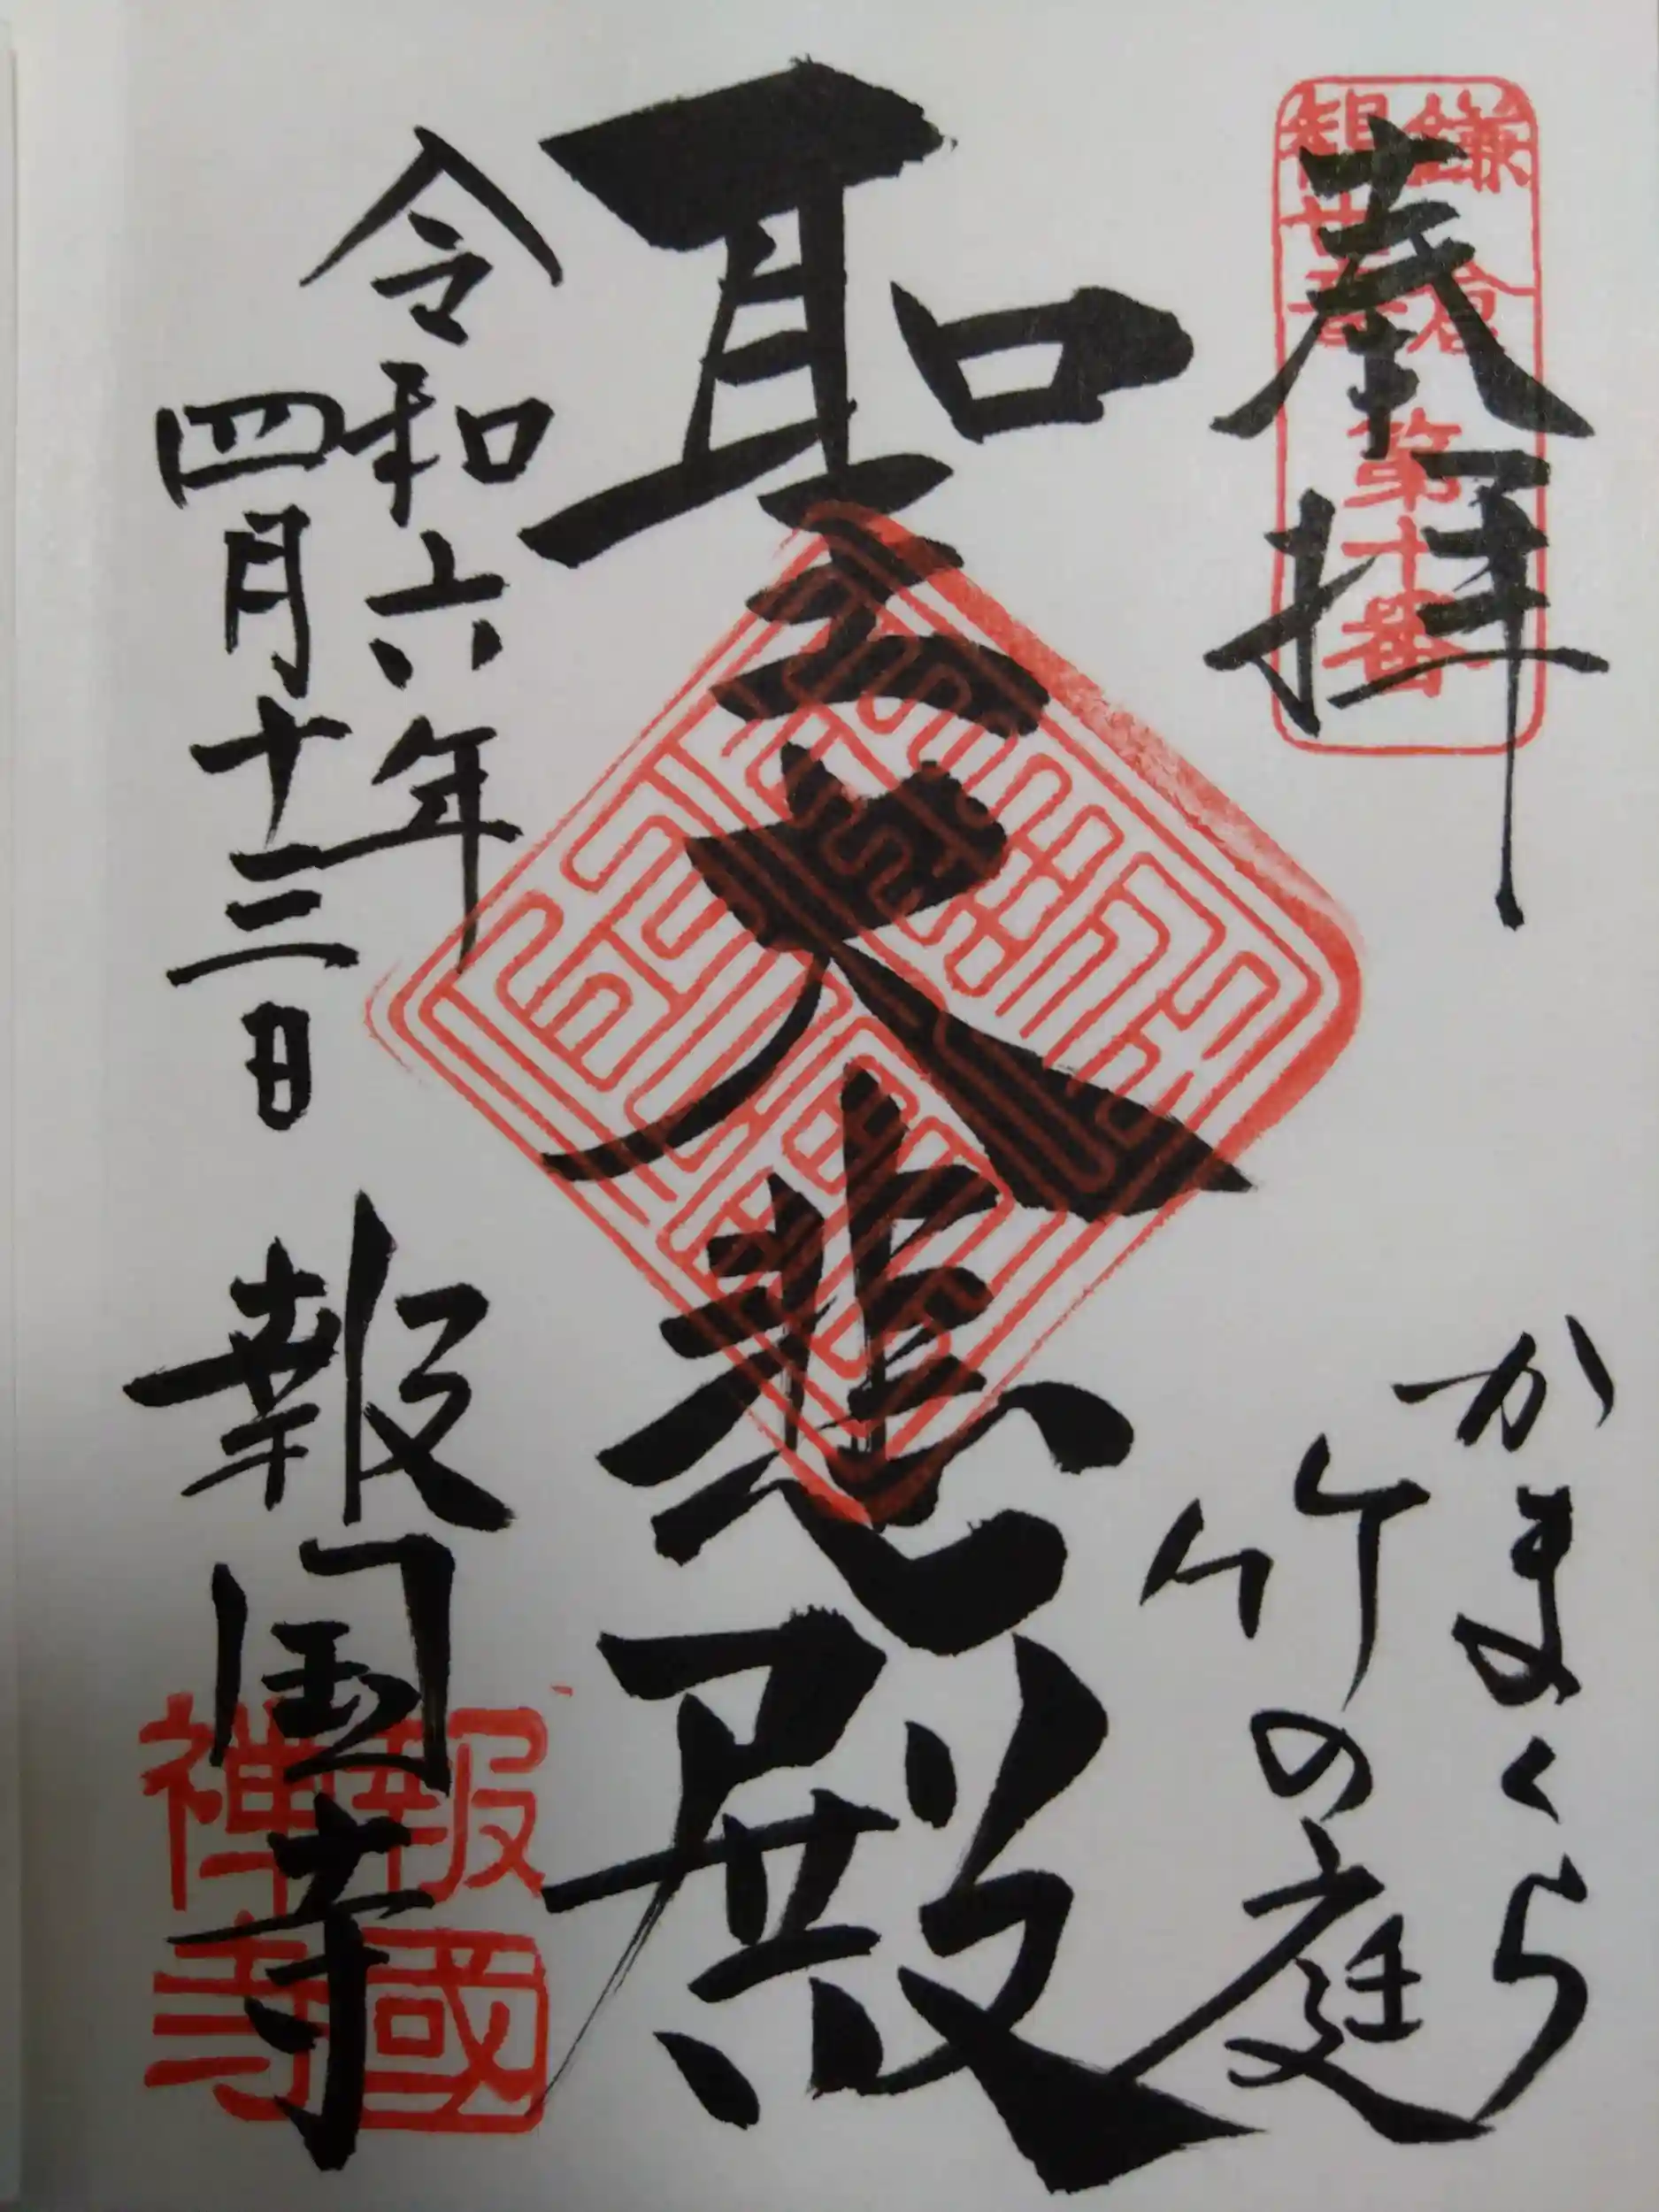 奉拝
鎌倉
観世音
第十番
かまくら
竹の庭
聖大悲殿
令和六年
四月十三日
報国寺
報國
禅寺